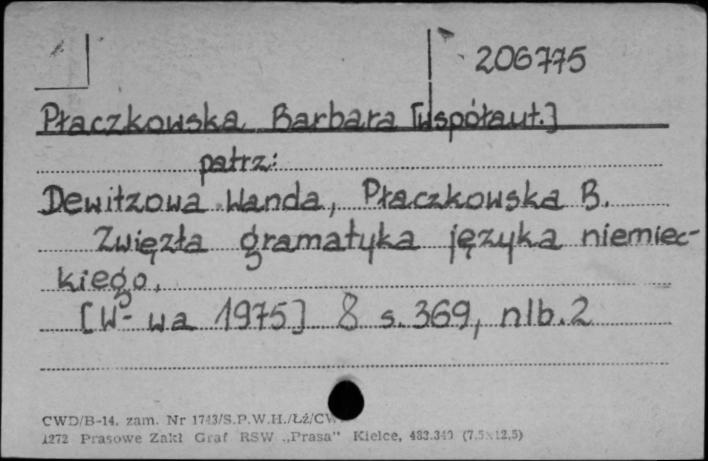 206775
Płaczkowska Barbara [współaut.]
patrz:
Dewitzowa Wanda, Płaczkowska B.
Zwięzła gramatyka języka niemiec-
kiego.
[W-wa 1975] 8 s. 369, nlb. 2
CWD/B-14. zam. Nr 1743/S.P.W.H./Łź/CW
1272 Prasowe Zakł Graf RSW „Prasa" Kielce, 483.340 (7,5×12,5)